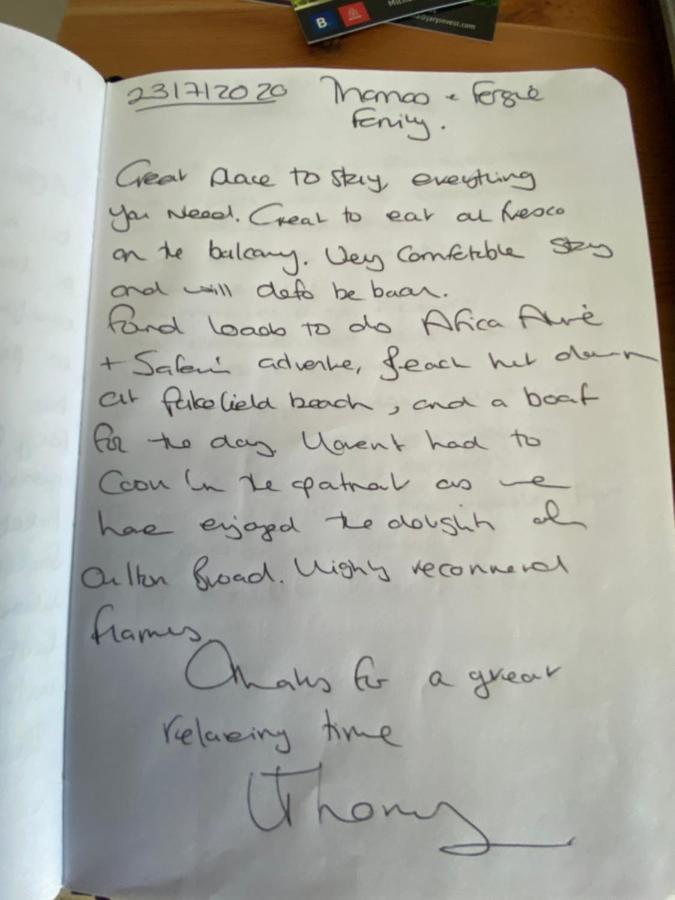 B.
@jarysinvest.com
23/7/2020 Thomas + Fergie
Family.
Great place to stay, everything
you need. Great to eat al fresco
on the balcony. Very comfortable stay
and will defo be back.
Found loads to do Africa Alive
+ Safari adventure, beach hut down
at Pakefield beach, and a boat
for the day. Havent had to
Cook in the apartment as we
have enjoyed the delights of
Oulton Broad. Highly recommend
flames
Thanks for a great
relaxing time
Thomas